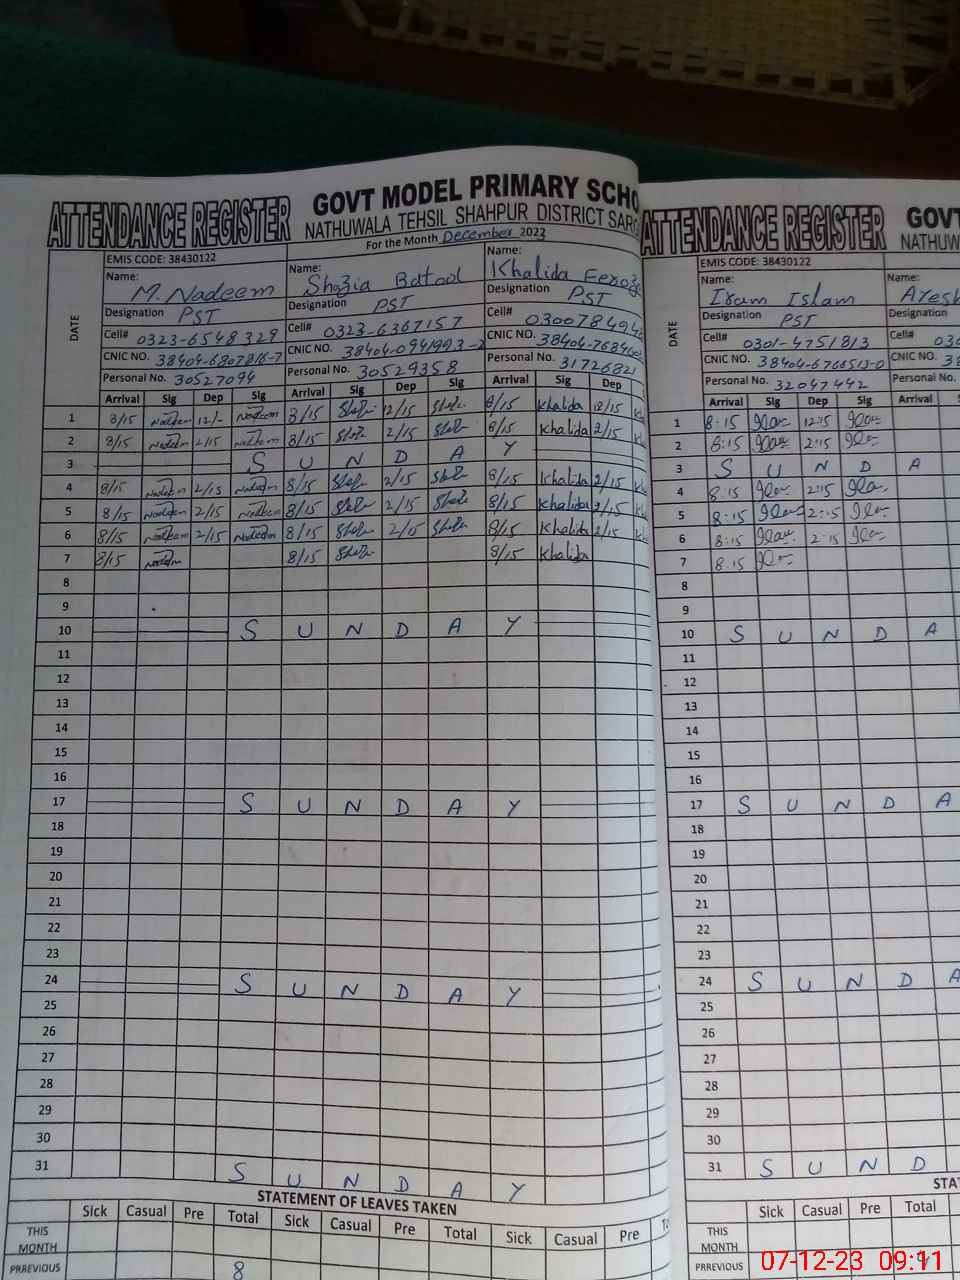 ATTENDANCE REGISTER GOVT MODEL PRIMARY SCHO
NATHUWALA TEHSIL SHAHPUR DISTRICT SARG
For the Month December 2023
EMIS CODE: 38430122
DATE
Name: M. Nadeem Name: Shazia Batool Name: Khalida
Designation PST Designation PST Designation PST
Cell# 0323-6548329 Cell# 0323-6367157 Cell# 030078494
CNIC NO. 38404-6807816-7 CNIC NO. 38404-0941993-2 CNIC NO. 38404-768460
Personal No. 30527094 Personal No. 30529358 Personal No. 31726821
Arrival Sig Dep Sig Arrival Sig Dep Sig Arrival Sig Dep
1 8/15 Nadeem 12/- Nadeem 8/15 12/15 8/15 Khalida 12/15
2 8/15 Nadeem 2/15 Nadeem 8/15 2/15 8/15 Khalida 2/15
3 S U N D A Y
4 8/15 Nadeem 2/15 Nadeem 8/15 2/15 8/15 Khalida 2/15
5 8/15 Nadeem 2/15 Nadeem 8/15 2/15 8/15 Khalida 2/15
6 8/15 Nadeem 2/15 Nadeem 8/15 2/15 8/15 Khalida 2/15
7 8/15 Nadeem 8/15 8/15 Khalida
8
9
10 S U N D A Y
11
12
13
14
15
16
17 S U N D A Y
18
19
20
21
22
23
24 S U N D A Y
25
26
27
28
29
30
31 S U N D A Y
STATEMENT OF LEAVES TAKEN
Sick Casual Pre Total Sick Casual Pre Total Sick Casual Pre To
THIS
MONTH
PRREVIOUS 8
ATTENDANCE REGISTER GOVT
NATHUW
EMIS CODE: 38430122
DATE
Name: Iram Islam Name: Ayesh
Designation PST Designation
Cell# 0301-4751813 Cell# 030
CNIC NO. 38404-6766513-0 CNIC NO. 38
Personal No. 32047442 Personal No.
Arrival Sig Dep Sig Arrival S
1 8:15 12:15
2 8:15 2:15
3 S U N D A
4 8:15 2:15
5 8:15 2:15
6 8:15 2:15
7 8:15
8
9
10 S U N D A
11
12
13
14
15
16
17 S U N D A
18
19
20
21
22
23
24 S U N D A
25
26
27
28
29
30
31 S U N D
STA
Sick Casual Pre Total
THIS
MONTH
PRREVIOUS
07-12-23 09:11